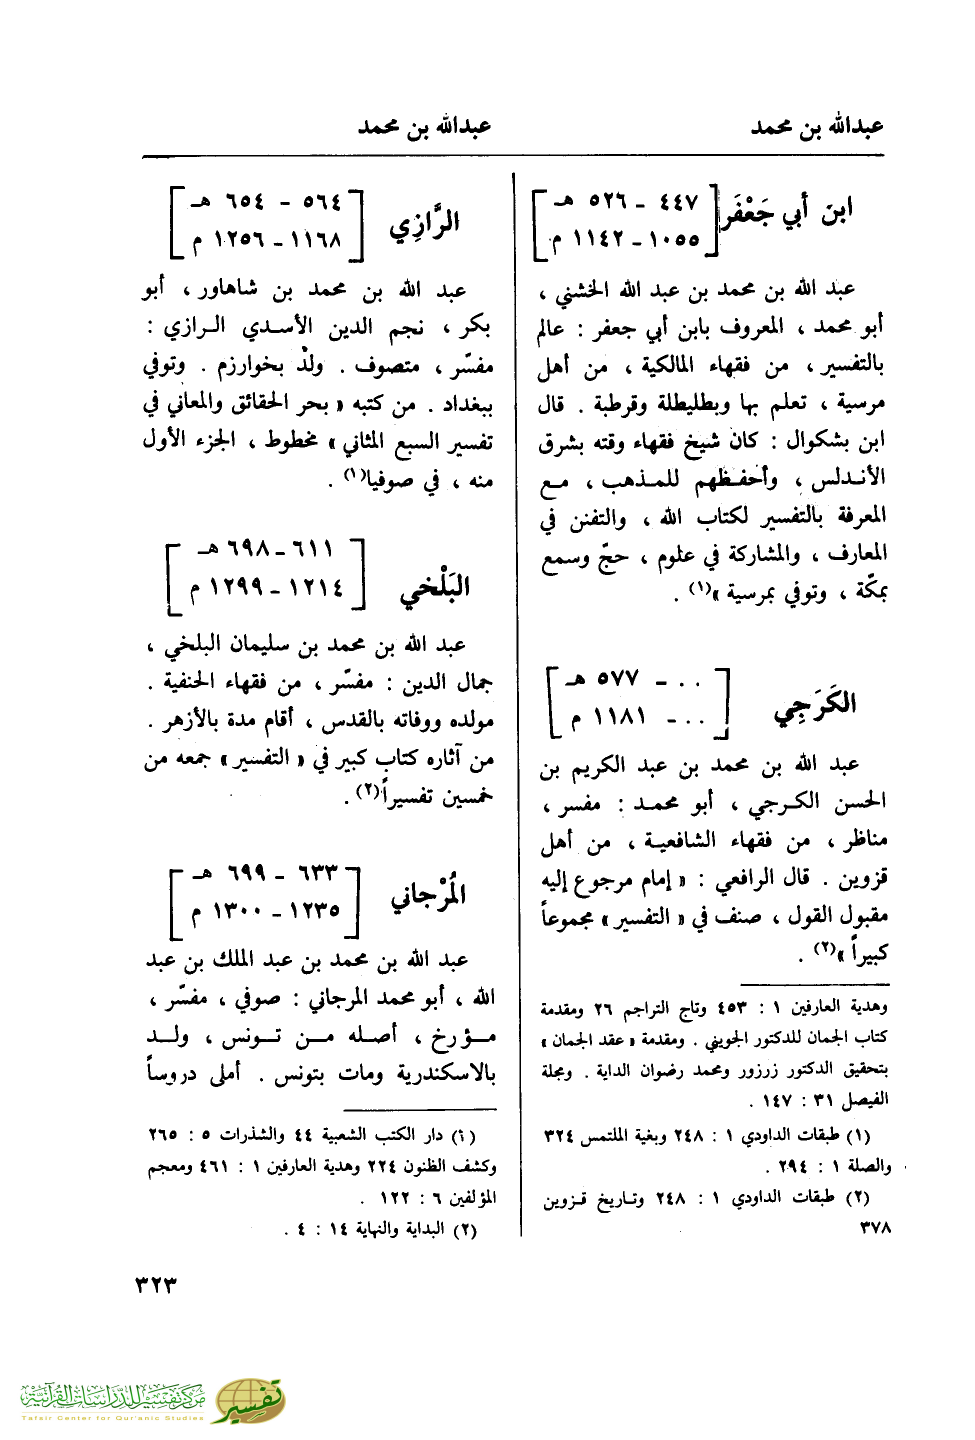 عبدالله بن محمد
عبدالله بن محمد
ابن أبي جَعْفَر
٤٤٧ - ٥٢٦ هـ
١٠٥٥ - ١١٤٢ م
عبد الله بن محمد بن عبد الله الخشني ،
أبو محمد ، المعروف بابن أبي جعفر : عالم
بالتفسير ، من فقهاء المالكية ، من أهل
مرسية ، تعلم بها وبطليطلة وقرطبة . قال
ابن بشكوال : كان شيخ فقهاء وقته بشرق
الأندلس ، وأحفظهم للمذهب ، مع
المعرفة بالتفسير لكتاب الله ، والتفنن في
المعارف ، والمشاركة في علوم ، حجّ وسمع
بمكّة ، وتوفي بمرسية »(١) .
الكَرَجِي
. . - ٥٧٧ هـ
. . - ١١٨١ م
عبد الله بن محمد بن عبد الكريم بن
الحسن الكرجي ، أبو محمد : مفسر ،
مناظر ، من فقهاء الشافعية ، من أهل
قزوين . قال الرافعي : « إمام مرجوع إليه
مقبول القول ، صنف في « التفسير » مجموعاً
كبيراً »(٢) .
وهدية العارفين ١ : ٤٥٣ وتاج التراجم ٢٦ ومقدمة
كتاب الجمان للدكتور الجويني . ومقدمة « عقد الجمان »
بتحقيق الدكتور زرزور ومحمد رضوان الداية . ومجلة
الفيصل ٣١ : ١٤٧ .
(١) طبقات الداودي ١ : ٢٤٨ وبغية الملتمس ٣٢٤
والصلة ١ : ٢٩٤ .
(٢) طبقات الداودي ١ : ٢٤٨ وتاريخ قزوين
٣٧٨
الرَّازِي
٥٦٤ - ٦٥٤ هـ
١١٦٨ - ١٢٥٦ م
عبد الله بن محمد بن شاهاور ، أبو
بكر ، نجم الدين الأسدي الرازي :
مفسّر ، متصوف . ولد بخوارزم . وتوفي
ببغداد . من كتبه « بحر الحقائق والمعاني في
تفسير السبع المثاني » مخطوط ، الجزء الأول
منه ، في صوفيا(١) .
البَلْخي
٦١١ - ٦٩٨ هـ
١٢١٤ - ١٢٩٩ م
عبد الله بن محمد بن سليمان البلخي ،
جمال الدين : مفسّر ، من فقهاء الحنفية .
مولده ووفاته بالقدس ، أقام مدة بالأزهر .
من آثاره كتاب كبير في « التفسير » جمعه من
خمسين تفسيراً(٢) .
المُرْجاني
٦٣٣ - ٦٩٩ هـ
١٢٣٥ - ١٣٠٠ م
عبد الله بن محمد بن عبد الملك بن عبد
الله ، أبو محمد المرجاني : صوفي ، مفسّر ،
مؤرخ ، أصله من تونس ، ولد
بالاسكندرية ومات بتونس . أملى دروساً
(١) دار الكتب الشعبية ٤٤ والشذرات ٥ : ٢٦٥
وكشف الظنون ٢٢٤ وهدية العارفين ١ : ٤٦١ ومعجم
المؤلفين ٦ : ١٢٢ .
(٢) البداية والنهاية ١٤ : ٤ .
٣٢٣
مركز تفسير للدراسات القرآنية
Tafsir Center for Qur'anic Studies
تفسير